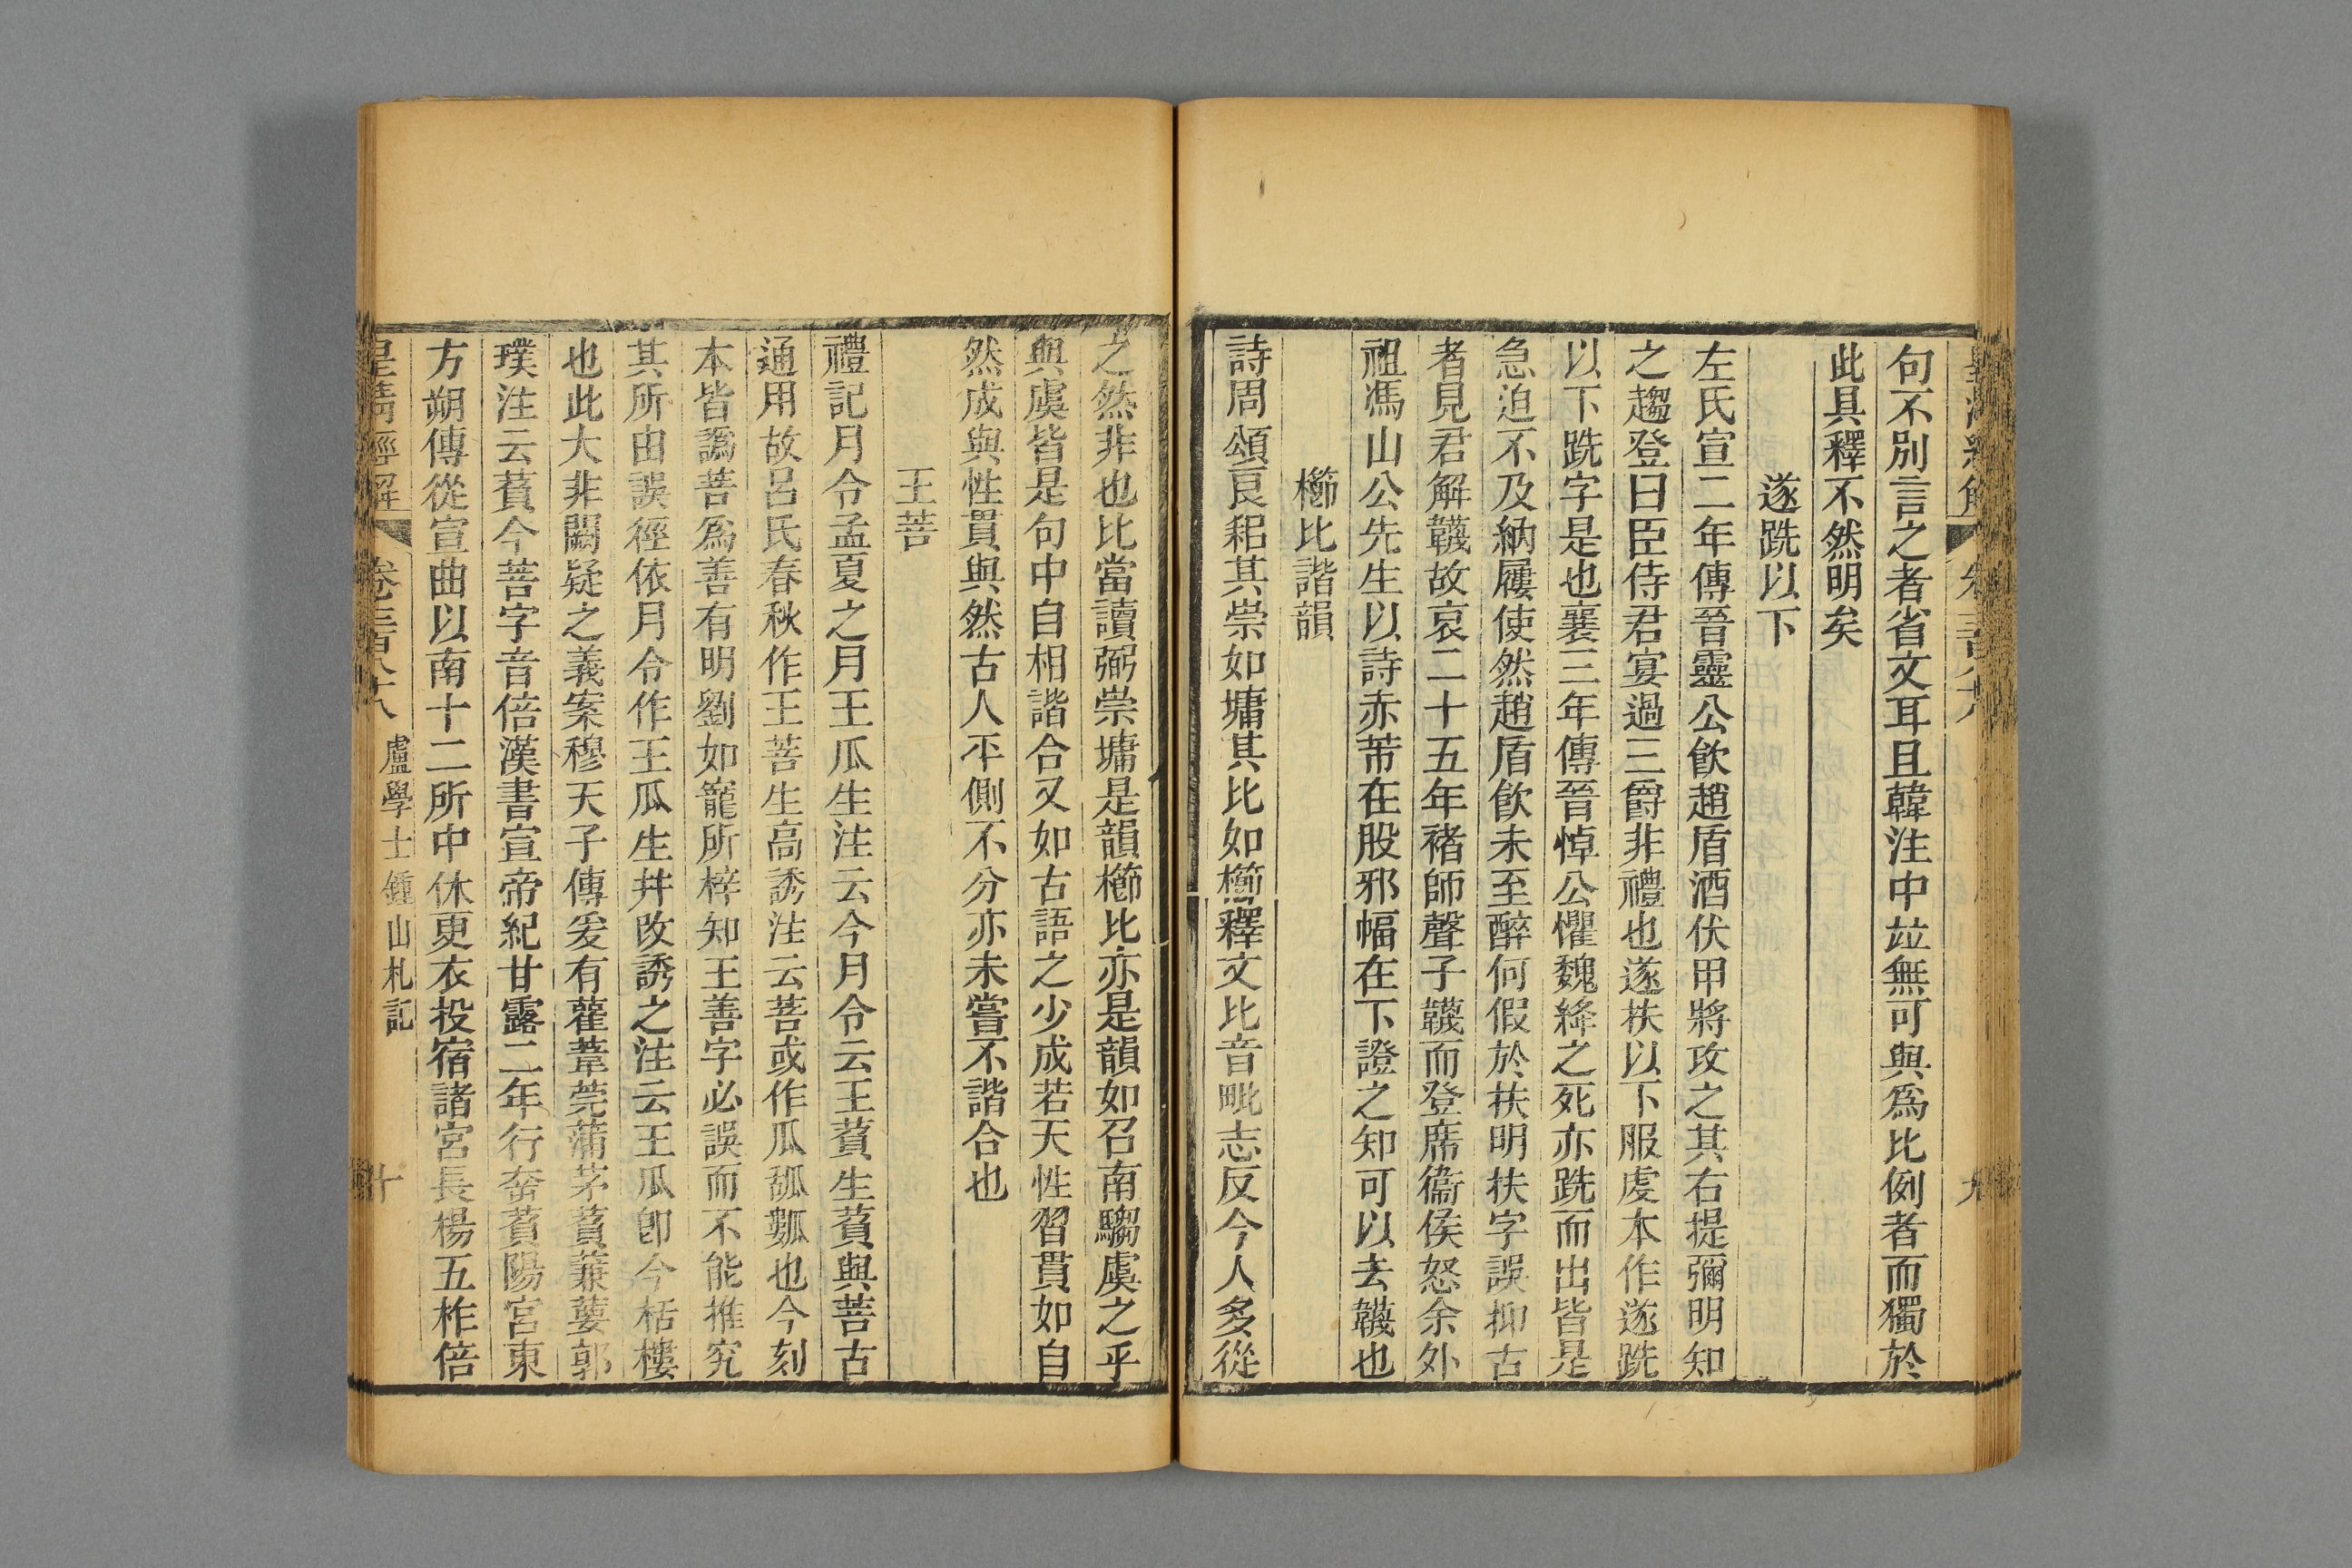 句不別言之者省文耳且韓注中竝無可與爲比例者而獨於
此具釋不然明矣
遂跣以下
左氏宣二年傳晉靈公飮趙盾酒伏甲將攻之其右提彌明知
之趨登曰臣侍君宴過三爵非禮也遂扶以下服虔本作遂跣
以下跣字是也襄三年傳晉悼公懼魏絳之死亦跣而出皆是
急迫不及納屨使然趙盾飮未至醉何假於扶明扶字誤抑古
者見君解韤故哀二十五年褚師聲子韤而登席衞侯怒余外
祖馮山公先生以詩赤芾在股邪幅在下證之知可以去韤也
櫛比諧韻
詩周頌良耜其崇如墉其比如櫛釋文比音毗志反今人多從
之然非也比當讀弼崇墉是韻櫛比亦是韻如召南騶虞之乎
與虞皆是句中自相諧合又如古語之少成若天性習貫如自
然成與性貫與然古人平側不分亦未嘗不諧合也
王菩
禮記月令孟夏之月王瓜生注云今月令云王萯生萯與菩古
通用故呂氏春秋作王菩生高誘注云菩或作瓜瓠𤬏也今刻
本皆譌菩爲善有明劉如寵所梓知王善字必誤而不能推究
其所由誤徑依月令作王瓜生幷改誘之注云王瓜卽今栝樓
也此大非闕疑之義案穆天子傳爰有雚葦莞蒲茅萯蒹葽郭
璞注云萯今菩字音倍漢書宣帝紀甘露二年行幸萯陽宮東
方朔傳從宣曲以南十二所中休更衣投宿諸宮長楊五柞倍
皇淸經解 卷三百八十八 盧學士鍾山札記 十